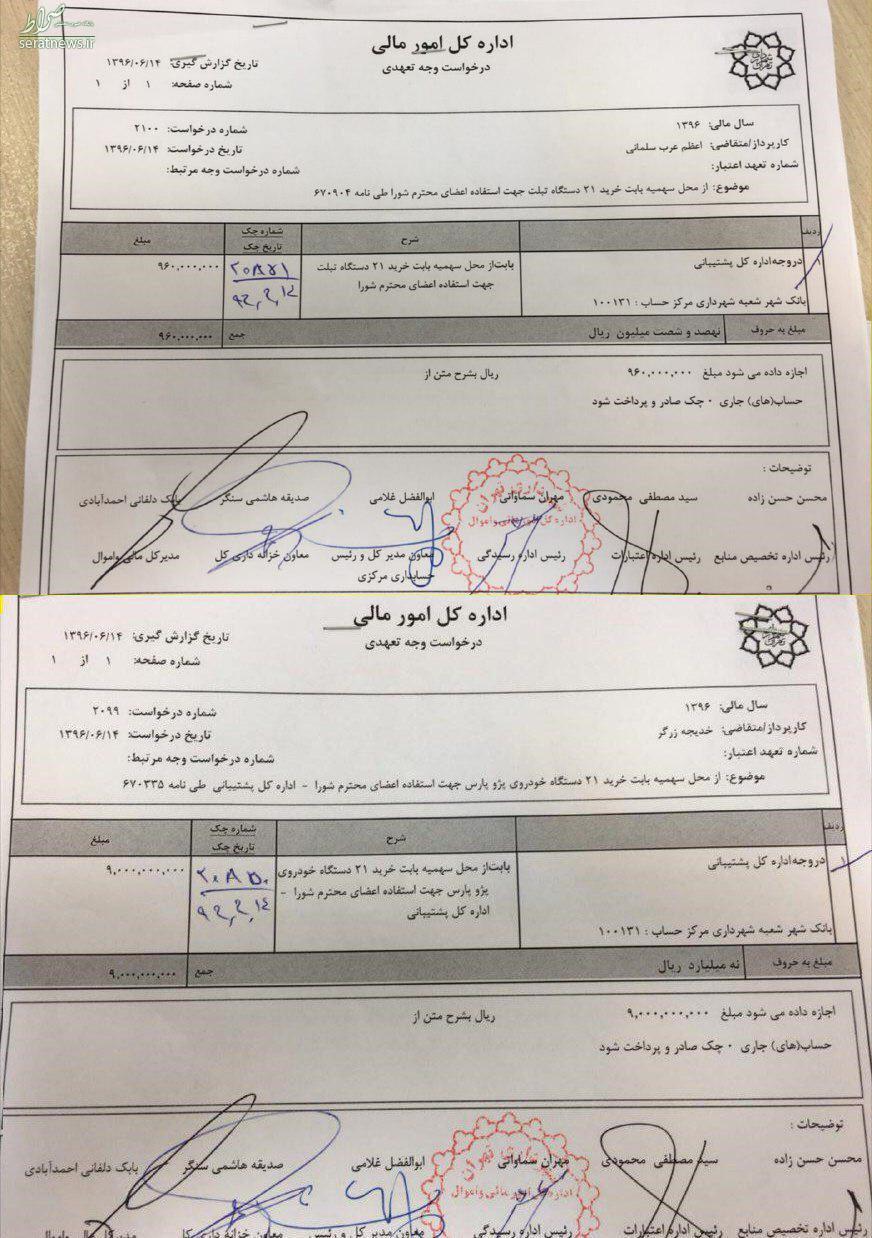 صراط
seratnews.ir
اداره کل امور مالی
درخواست وجه تعهدی
تاریخ گزارش گیری: ۱۳۹۶/۰۶/۱۴
شماره صفحه: ۱ از ۱
سال مالی: ۱۳۹۶
شماره درخواست: ۲۱۰۰
کارپرداز/متقاضی: اعظم عرب سلمانی
تاریخ درخواست: ۱۳۹۶/۰۶/۱۴
شماره تعهد اعتبار:
شماره درخواست وجه مرتبط:
موضوع: از محل سهمیه بابت خرید ۲۱ دستگاه تبلت جهت استفاده اعضای محترم شورا طی نامه ۶۷۰۹۰۴
ردیف شرح شماره چک مبلغ
تاریخ چک
۱ دروجه‌اداره کل پشتیبانی بابت‌از محل سهمیه بابت خرید ۲۱ دستگاه تبلت ۲۰۸۵۱ ۹۶۰,۰۰۰,۰۰۰
جهت استفاده اعضای محترم شورا ۹۶,۶,۱۴
بانک شهر شعبه شهرداری مرکز حساب : ۱۰۰۱۳۱
مبلغ به حروف نهصد و شصت میلیون ریال جمع ۹۶۰,۰۰۰,۰۰۰
اجازه داده می شود مبلغ ۹۶۰,۰۰۰,۰۰۰ ریال بشرح متن از
حساب(های) جاری ۰ چک صادر و پرداخت شود
توضیحات :
محسن حسن زاده سید مصطفی محمودی مهران سماواتی ابوالفضل غلامی صدیقه هاشمی سنگر بابک دلفانی احمدآبادی
اداره کل امور مالی و اموال
رئیس اداره تخصیص منابع رئیس اداره اعتبارات رئیس اداره رسیدگی معاون مدیر کل و رئیس معاون خزانه داری کل مدیرکل مالی واموال
حسابداری مرکزی
اداره کل امور مالی
درخواست وجه تعهدی
تاریخ گزارش گیری: ۱۳۹۶/۰۶/۱۴
شماره صفحه: ۱ از ۱
سال مالی: ۱۳۹۶
شماره درخواست: ۲۰۹۹
کارپرداز/متقاضی: خدیجه زرگر
تاریخ درخواست: ۱۳۹۶/۰۶/۱۴
شماره تعهد اعتبار:
شماره درخواست وجه مرتبط:
موضوع: از محل سهمیه بابت خرید ۲۱ دستگاه خودروی پژو پارس جهت استفاده اعضای محترم شورا - اداره کل پشتیبانی طی نامه ۶۷۰۳۳۵
ردیف شرح شماره چک مبلغ
تاریخ چک
۱ دروجه‌اداره کل پشتیبانی بابت‌از محل سهمیه بابت خرید ۲۱ دستگاه خودروی ۲۰۸۵۰ ۹,۰۰۰,۰۰۰,۰۰۰
پژو پارس جهت استفاده اعضای محترم شورا - ۹۶,۶,۱۴
اداره کل پشتیبانی
بانک شهر شعبه شهرداری مرکز حساب : ۱۰۰۱۳۱
مبلغ به حروف نه میلیارد ریال جمع ۹,۰۰۰,۰۰۰,۰۰۰
اجازه داده می شود مبلغ ۹,۰۰۰,۰۰۰,۰۰۰ ریال بشرح متن از
حساب(های) جاری ۰ چک صادر و پرداخت شود
توضیحات :
محسن حسن زاده سید مصطفی محمودی مهران سماواتی ابوالفضل غلامی صدیقه هاشمی سنگر بابک دلفانی احمدآبادی
اداره کل امور مالی و اموال
رئیس اداره تخصیص منابع رئیس اداره اعتبارات رئیس اداره رسیدگی معاون مدیر کل و رئیس معاون خزانه داری کل مدیرکل مالی واموال